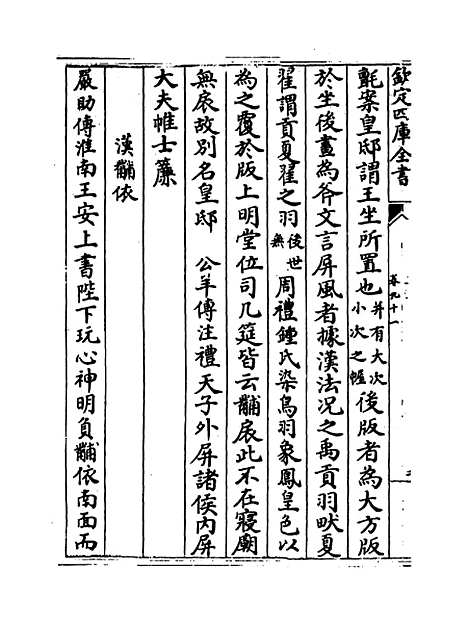 欽定四庫全書
卷九十一
氈案皇邸謂王坐所置也并有大次小次之幄後版者為大方版
於坐後畫為斧文言屏風者據漢法況之禹貢羽畎夏
翟謂貢夏翟之羽後世無周禮鍾氏染鳥羽象鳳皇色以
為之覆於版上明堂位司几筵皆云黼扆此不在寢廟
無扆故別名皇邸 公羊傳注禮天子外屏諸侯內屏
大夫帷士簾
漢黼依
嚴助傳淮南王安上書陛下玩心神明負黼依南面而